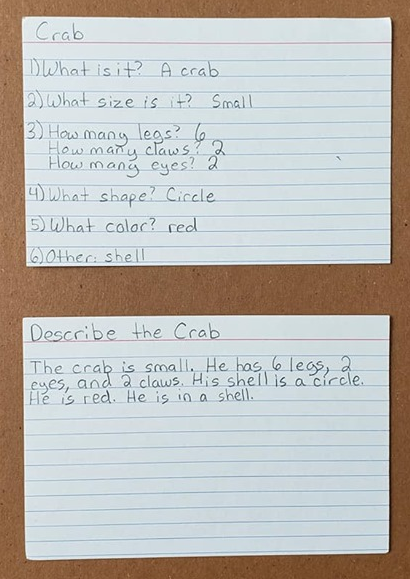 Crab
1) What is it? A crab
2) What size is it? Small
3) How many legs? 6
How many claws? 2
How many eyes? 2
4) What shape? Circle
5) What color? red
6) Other: shell
Describe the Crab
The crab is small. He has 6 legs, 2
eyes, and 2 claws. His shell is a circle.
He is red. He is in a shell.